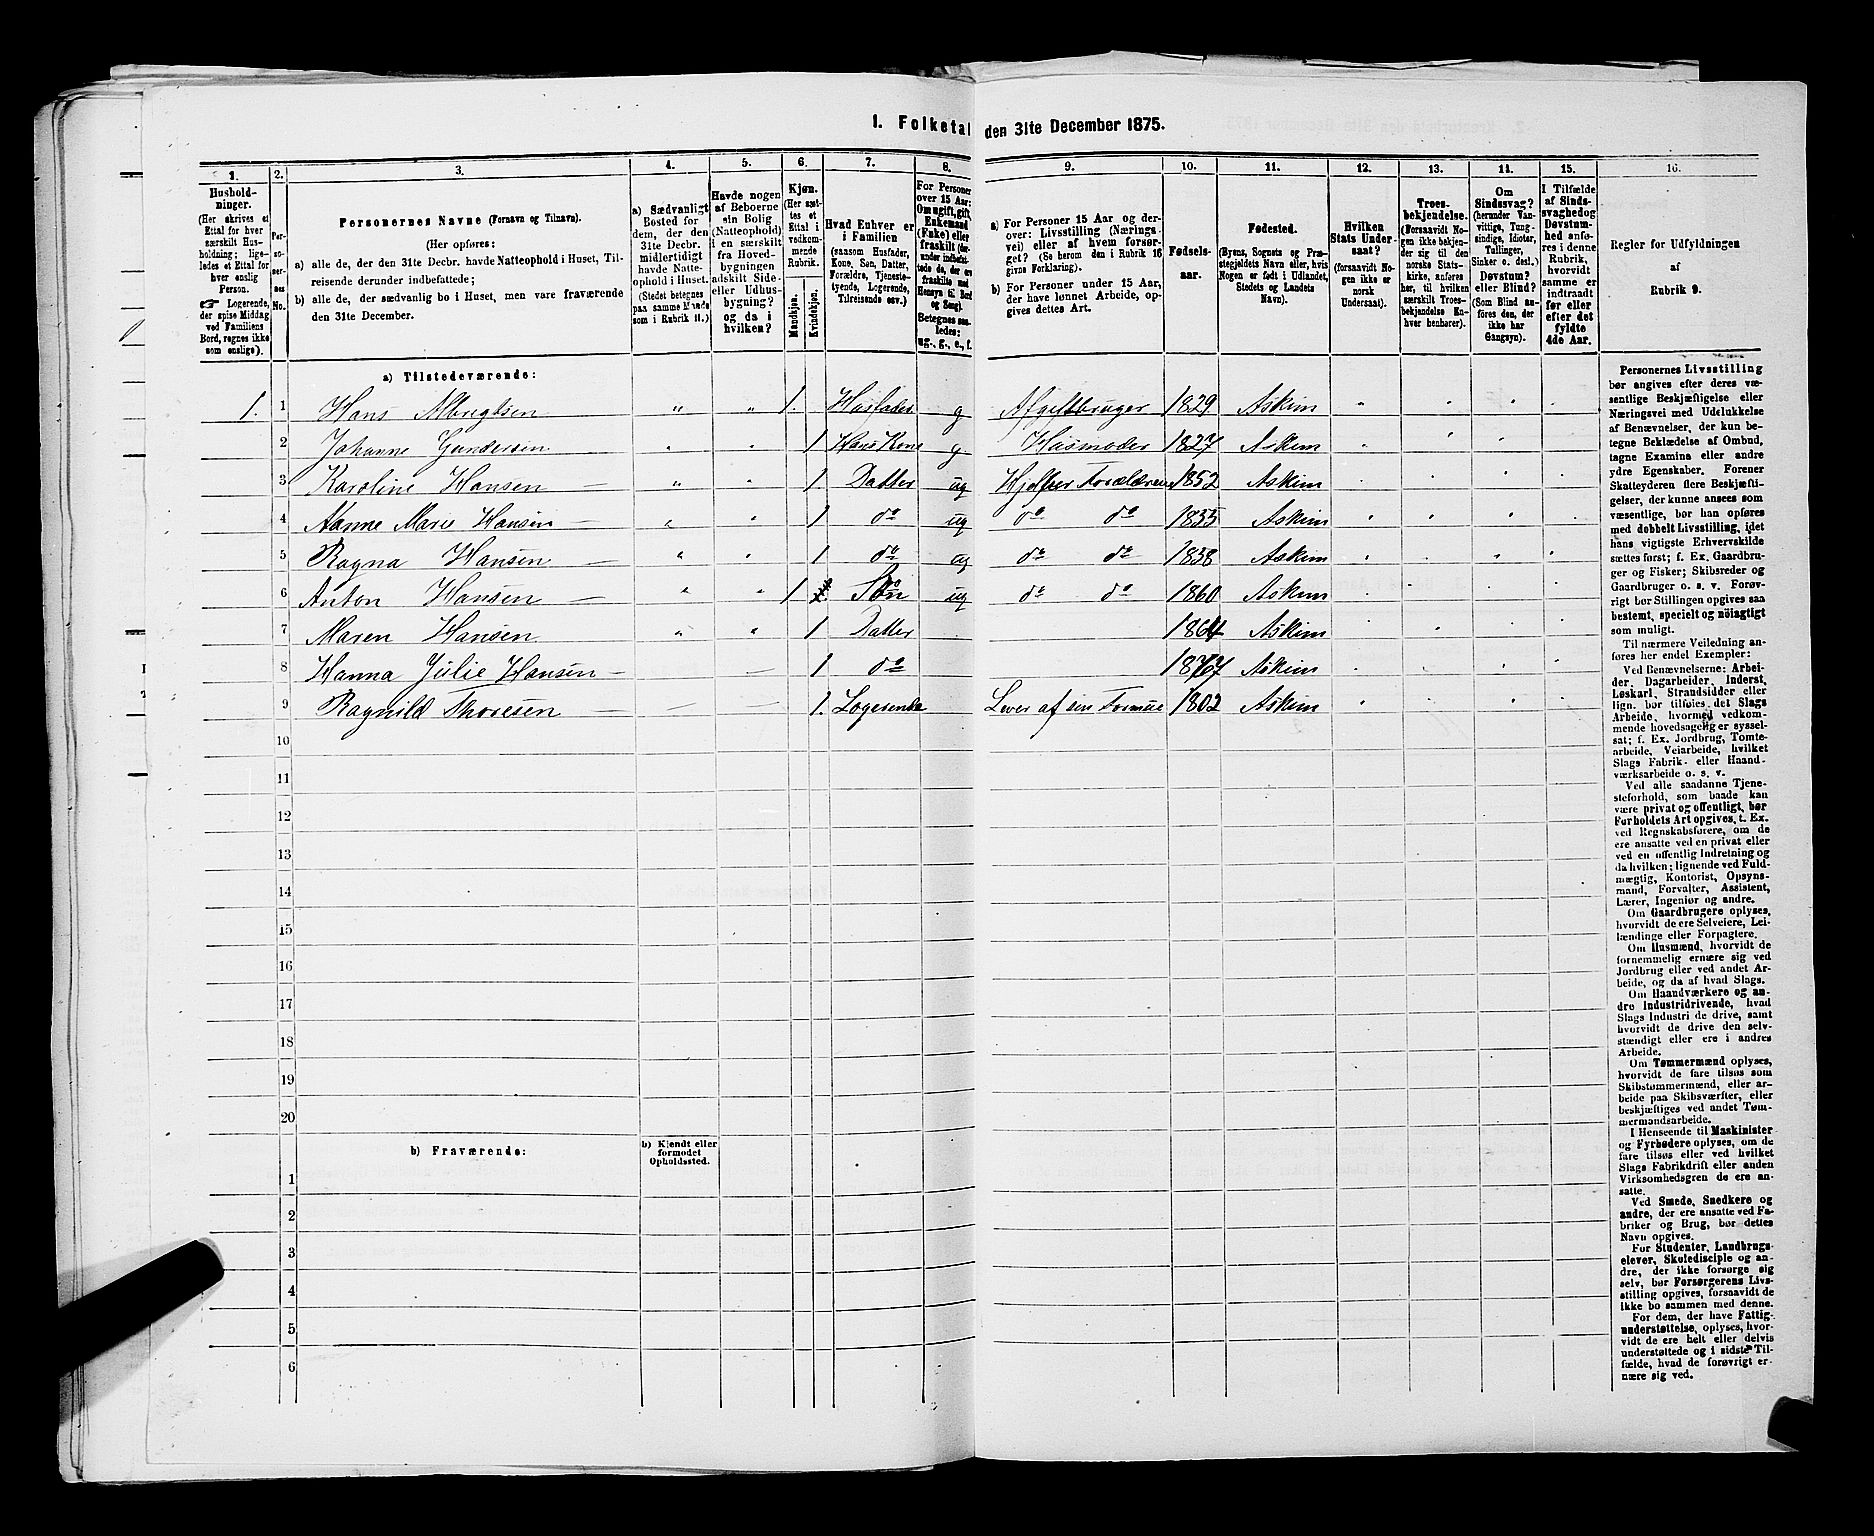 1. Folketal den 31te December 1875.
1. 2. 3. 4. 5. 6. 7. 8. 9. 10. 11. 12. 13. 14. 15. 16.
Hushold-
ninger.
(Her skrives et
Ettal for hver
særskilt Hus-
holdning; lige-
ledes et Ettal for
hver enslig
Person.
☞ Logerende,
der spise Middag
ved Familiens
Bord, regnes ikke
som enslige).
Per-
so-
ner-
nes
No.
Personernes Navne (Fornavn og Tilnavn).
(Her opføres:
a) alle de, der den 31te Decbr. havde Natteophold i Huset, Til-
reisende derunder indbefattede;
b) alle de, der sædvanlig bo i Huset, men vare fraværende
den 31te December.
a) Sædvanligt
Bosted for
dem, der den
31te Decbr.
midlertidigt
havde Natte-
ophold i Huset.
(Stedet betegnes
paa samme Maade
som i Rubrik 11.)
Havde nogen
af Beboerne
sin Bolig
(Natteophold)
i en særskilt
fra Hoved-
bygningen
adskilt Side-
eller Udhus-
bygning?
og da i
hvilken?
Kjøn.
(Her sæt-
tes et
Ettal i
vedkom-
mende
Rubrik.
Mandkjøn.
Kvindekjøn.
Hvad Enhver er
i Familien
(saasom Husfader,
Kone, Søn, Datter,
Forældre, Tjeneste-
tyende, Logerende,
Tilreisende osv.)
For Personer
over 15 Aar:
Om ugift, gift,
Enkemand
(Enke) eller
fraskilt (her-
under indbefat-
tede de, der ere
fraskilte med
Hensyn til Bord
og Seng).
Betegnes saa-
ledes:
ug., g., e., f.
a) For Personer 15 Aar og der-
over: Livsstilling (Nærings-
vei) eller af hvem forsør-
get? (Se herom den i Rubrik 16
givne Forklaring).
b) For Personer under 15 Aar,
der have lønnet Arbeide, op-
gives dettes Art.
Fødsels-
aar.
Fødested.
(Byens, Sognets og Præ-
stegjeldets Navn eller, hvis
Nogen er født i Udlandet,
Stedets og Landets
Navn).
Hvilken
Stats Under-
saat?
(forsaavidt No-
gen ikke er
norsk
Undersaat).
Troes-
bekjendelse.
(Forsaavidt No-
gen ikke bekjen-
der sig til den
norske Stats-
kirke, anføres
her, til hvilken
særskilt Troes-
bekjendelse En-
hver henhører).
Om
Sindssvag?
(herunder Van-
vittige, Tung-
sindige, Idioter,
Tullinger,
Sinker o. desl.)
Døvstum?
eller Blind?
(Som Blind an-
føres den, der
ikke har
Gangsyn).
I Tilfælde
af Sinds-
svaghed og
Døvstum-
hed anfø-
res i denne
Rubrik,
hvorvidt
samme er
indtraadt
før eller
efter det
fyldte
4de Aar.
Regler for Udfyldningen
af
Rubrik 9.
a) Tilstedeværende:
1. 1 Hans Albregtsen " " 1. Husfader g Afgiftbruger 1829 Askim
2 Johanne Gundersen " " 1 Hans Kone g Husmoder 1827 Askim
3 Karoline Hansen — " " 1. Datter ug Hjelper Forældrene 1852 Askim
4 Aanne Marie Hansen — " " 1 do ug do do 1855 Askim
5 Ragna Hansen — " " 1 do ug do do 1858 Askim
6 Anton Hansen — " " 1 Søn ug do do 1860 Askim
7 Maren Hansen " " 1 Datter 1864 Askim
8 Hanna Julie Hansen — — 1 do 1867 Askim
9 Ragnild Thoresen — — — 1. Logerende Lever af sin Formue 1802 Askim
10
11
12
13
14
15
16
17
18
19
20
b) Fraværende:
b) Kjendt eller
formodet
Opholdssted.
1
2
3
4
5
6
Personernes Livsstilling
bør angives efter deres væ-
sentlige Beskjæftigelse eller
Næringsvei med Udelukkelse
af Benævnelser, der kun be-
tegne Beklædelse af Ombud,
tagne Examina eller andre
ydre Egenskaber. Forener
Skatteyderen flere Beskjæfti-
gelser, der kunne ansees som
væsentlige, bør han opføres
med dobbelt Livsstilling, idet
hans vigtigste Erhvervskilde
sættes først; f. Ex. Gaardbru-
ger og Fisker; Skibsreder og
Gaardbruger o. s. v. Forøv-
rigt bør Stillingen opgives saa
bestemt, specielt og nöiagtigt
som muligt.
Til nærmere Veiledning an-
føres her endel Exempler:
Ved Benævnelserne: Arbei-
der, Dagarbeider, Inderst,
Løskarl, Strandsidder eller
lign. bør tilføies det Slags
Arbeide, hvormed vedkom-
mende hovedsagelig er syssel-
sat; f. Ex. Jordbrug, Tomte-
arbeide, Veiarbeide, hvilket
Slags Fabrik- eller Haand-
værksarbeide o. s. v.
Ved alle saadanne Tjene-
steforhold, som baade kan
være privat og offentligt, bør
Forholdets Art opgives, t. Ex.
ved Regnskabsførere, om de
ere ansatte ved en privat eller
ved en offentlig Indretning og
da hvilken; lignende ved Fuld-
mægtig, Kontorist, Opsyns-
mand, Forvalter, Assistent,
Lærer, Ingeniør og andre.
Om Gaardbrugere oplyses,
hvorvidt de ere Selveiere, Lei-
lændinge eller Forpagtere.
Om Husmænd, hvorvidt de
fornemmelig ernære sig ved
Jordbrug eller ved andet Ar-
beide, og da af hvad Slags.
Om Haandværkere og an-
dre Industridrivende, hvad
Slags Industri de drive, samt
hvorvidt de drive den selv-
stændigt eller ere i andres
Arbeide.
Om Tømmermænd oplyses,
hvorvidt de fare tilsøs som
Skibstømmermænd, eller ar-
beide paa Skibsværfter, eller
beskjæftiges ved andet Tøm-
mermandsarbeide.
I Henseende til Maskinister
og Fyrbødere oplyses, om de
fare tilsøs eller ved hvilket
Slags Fabrikdrift eller anden
Virksomhedsgren de ere an-
satte.
Ved Smede, Snedkere og
andre, der ere ansatte ved Fa-
briker og Brug, bør dettes
Navn opgives.
For Studenter, Landbrugs-
elever, Skoledisciple og an-
dre, der ikke forsørge sig
selv, bør Forsørgerens Livs-
stilling opgives, forsaavidt de
ikke bo sammen med denne.
For dem, der have Fattig-
understøttelse, oplyses, hvor-
vidt de ere helt eller delvis
understøttede og i sidste Til-
fælde, hvad de forøvrigt er-
nære sig ved.